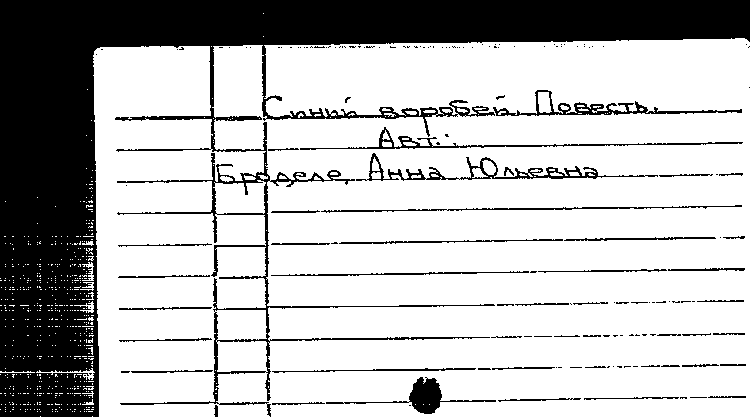 Синий воробей. Повесть.
Авт.:
Броделе, Анна Юльевна